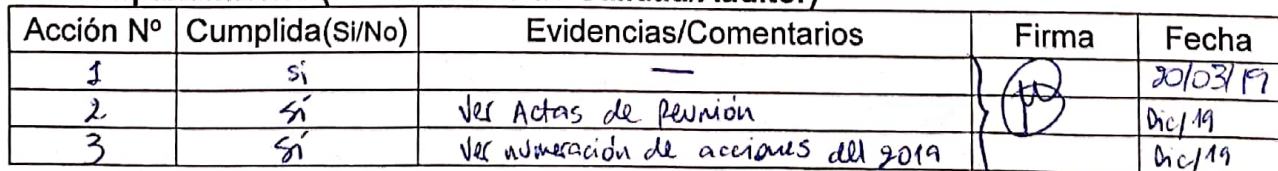 Acción Nº Cumplida(Si/No) Evidencias/Comentarios Firma Fecha
1 Sí — 20/03/19
2 Sí Ver Actas de Reunión Dic/19
3 Sí Ver numeración de acciones del 2019 Dic/19